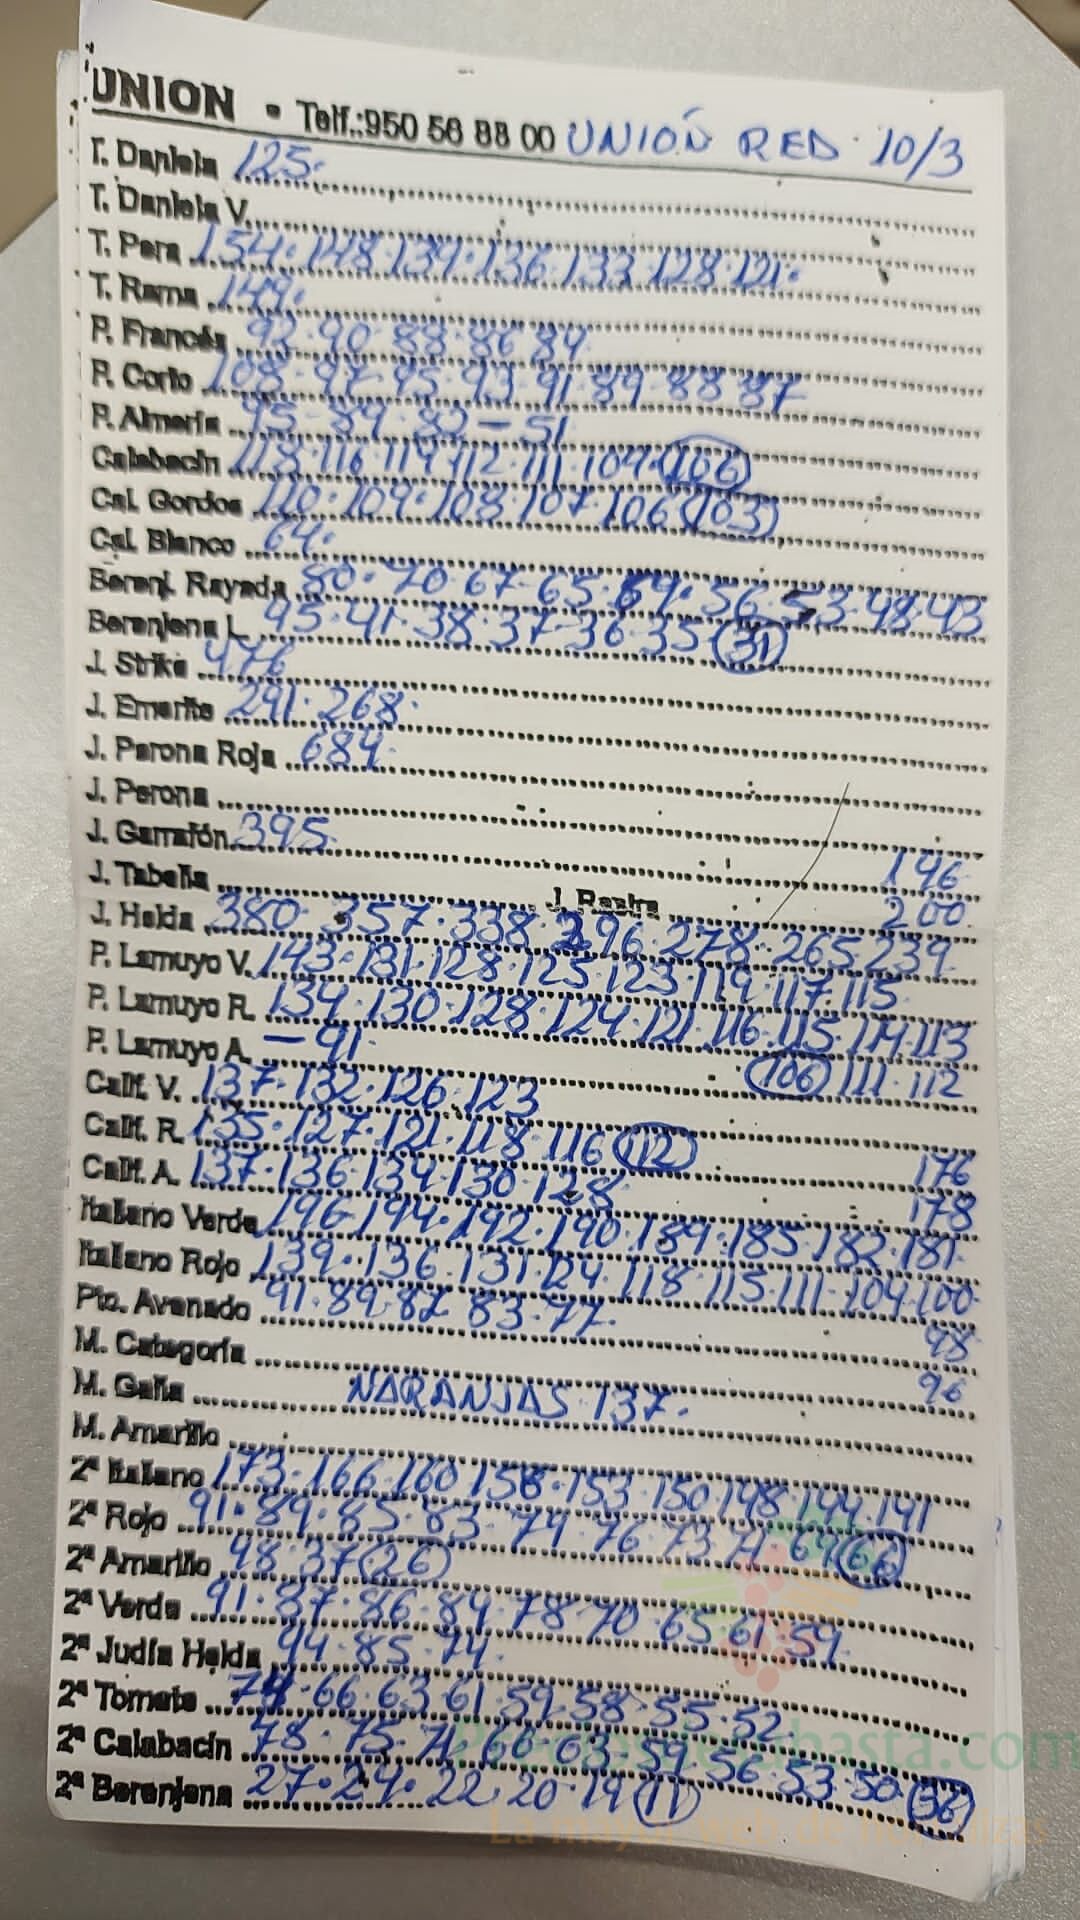 UNION • Telf.:950 56 88 00 UNIÓN RED 10/3
T. Daniela 125.
T. Daniela V.
T. Pera 154. 148. 139. 136. 133. 128. 121.
T. Rama 149.
P. Francés 92. 90. 88. 86 84
P. Corto 108. 97. 95. 93. 91. 89. 88 87
P. Almería 95. 89. 82 - 51
Calabacín 118. 116. 114. 112. 111. 109. (106)
Cal. Gordos 110. 109. 108. 107. 106 (103)
Cal. Blanco 64.
Berenj. Rayada 80. 70. 67. 65. 59. 56. 53. 48. 43
Berenjena L. 45. 41. 38. 37. 36. 35 (31)
J. Strike 476
J. Emerite 291. 268.
J. Perona Roja 684.
J. Perona
J. Garrafón 395. 146
J. Tabella J. Rastra 200
J. Helda 380. 357. 338. 296. 278. 265. 239
P. Lamuyo V. 143. 131. 128. 125. 123. 119. 117. 115
P. Lamuyo R. 134. 130. 128. 124. 121. 116. 115. 114. 113
P. Lamuyo A. - 91. (106) 111. 112
Calif. V. 137. 132. 126. 123
Calif. R. 135. 127. 121. 118. 116 (112) 176
Calif. A. 137. 136. 134. 130. 128 178
Italiano Verde 196. 194. 192. 190. 189. 185. 182. 181.
Italiano Rojo 139. 136. 131. 124. 118. 115. 111. 104. 100.
Pto. Avenado 91. 89. 87 83. 77. 98
M. Categoría 96
M. Galia NARANJAS 137.
M. Amarillo
2ª Italiano 173. 166. 160 156. 153. 150. 148. 144. 141
2ª Rojo 91. 89. 85. 83. 79. 76. 73. 71. 69 (66)
2ª Amarillo 48. 37 (26)
2ª Verde 91. 87. 86. 84. 78. 70. 65. 61. 59.
2ª Judía Helda 94. 85. 74.
2ª Tomate 66. 63. 61. 59. 58. 55. 52
2ª Calabacín 78. 75. 71. 66. 63. 59. 56. 53. 50. (36)
2ª Berenjena 27. 24. 22. 20. 19 (11)
La mayor web de hortalizas